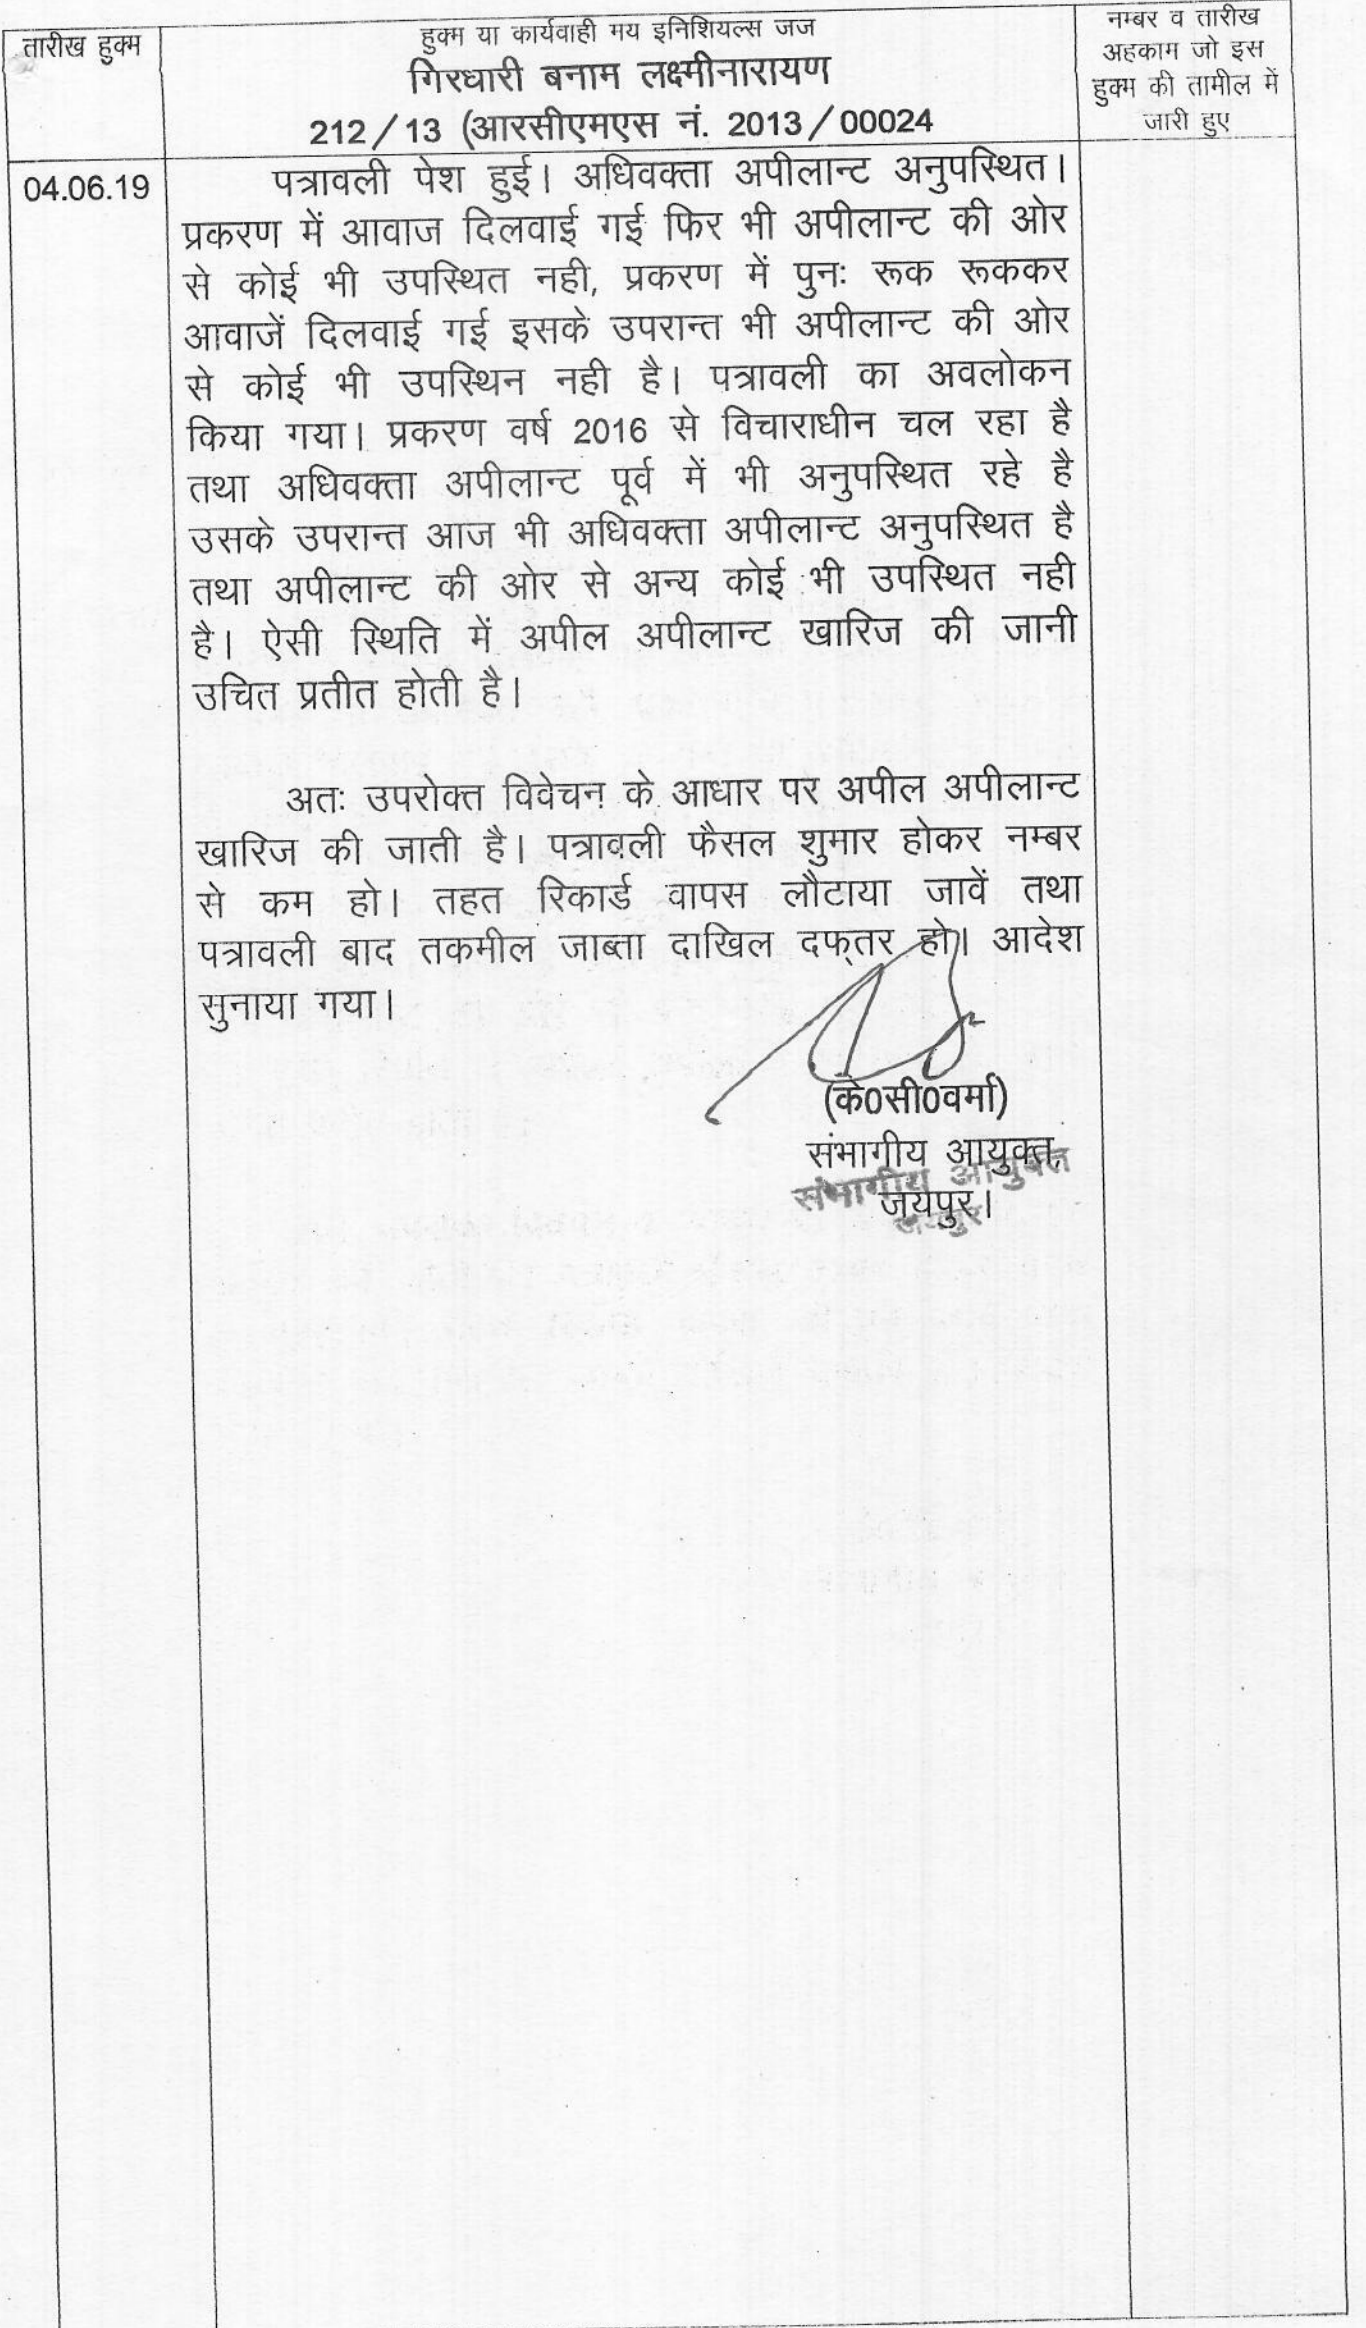 तारीख हुक्म
हुक्म या कार्यवाही मय इनिशियल्स जज
गिरधारी बनाम लक्ष्मीनारायण
212/13 (आरसीएमएस नं. 2013/00024
नम्बर व तारीख
अहकाम जो इस
हुक्म की तामील में
जारी हुए
04.06.19
पत्रावली पेश हुई। अधिवक्ता अपीलान्ट अनुपस्थित।
प्रकरण में आवाज दिलवाई गई फिर भी अपीलान्ट की ओर
से कोई भी उपस्थित नही, प्रकरण में पुनः रूक रूककर
आवाजें दिलवाई गई इसके उपरान्त भी अपीलान्ट की ओर
से कोई भी उपस्थिन नही है। पत्रावली का अवलोकन
किया गया। प्रकरण वर्ष 2016 से विचाराधीन चल रहा है
तथा अधिवक्ता अपीलान्ट पूर्व में भी अनुपस्थित रहे है
उसके उपरान्त आज भी अधिवक्ता अपीलान्ट अनुपस्थित है
तथा अपीलान्ट की ओर से अन्य कोई भी उपस्थित नही
है। ऐसी स्थिति में अपील अपीलान्ट खारिज की जानी
उचित प्रतीत होती है।
अतः उपरोक्त विवेचन के आधार पर अपील अपीलान्ट
खारिज की जाती है। पत्रावली फैसल शुमार होकर नम्बर
से कम हो। तहत रिकार्ड वापस लौटाया जावें तथा
पत्रावली बाद तकमील जाब्ता दाखिल दफ्तर हो। आदेश
सुनाया गया।
(के0सी0वर्मा)
संभागीय आयुक्त,
संभागीय आयुक्त
जयपुर।
जयपुर